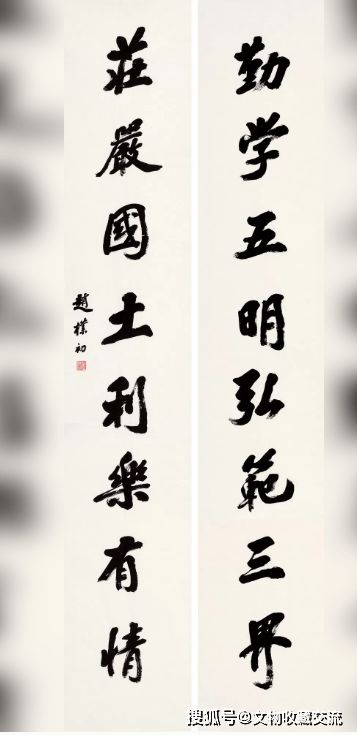 勤学五明弘範三界
莊嚴國土利樂有情
趙樸初
搜狐号@文物收藏交流